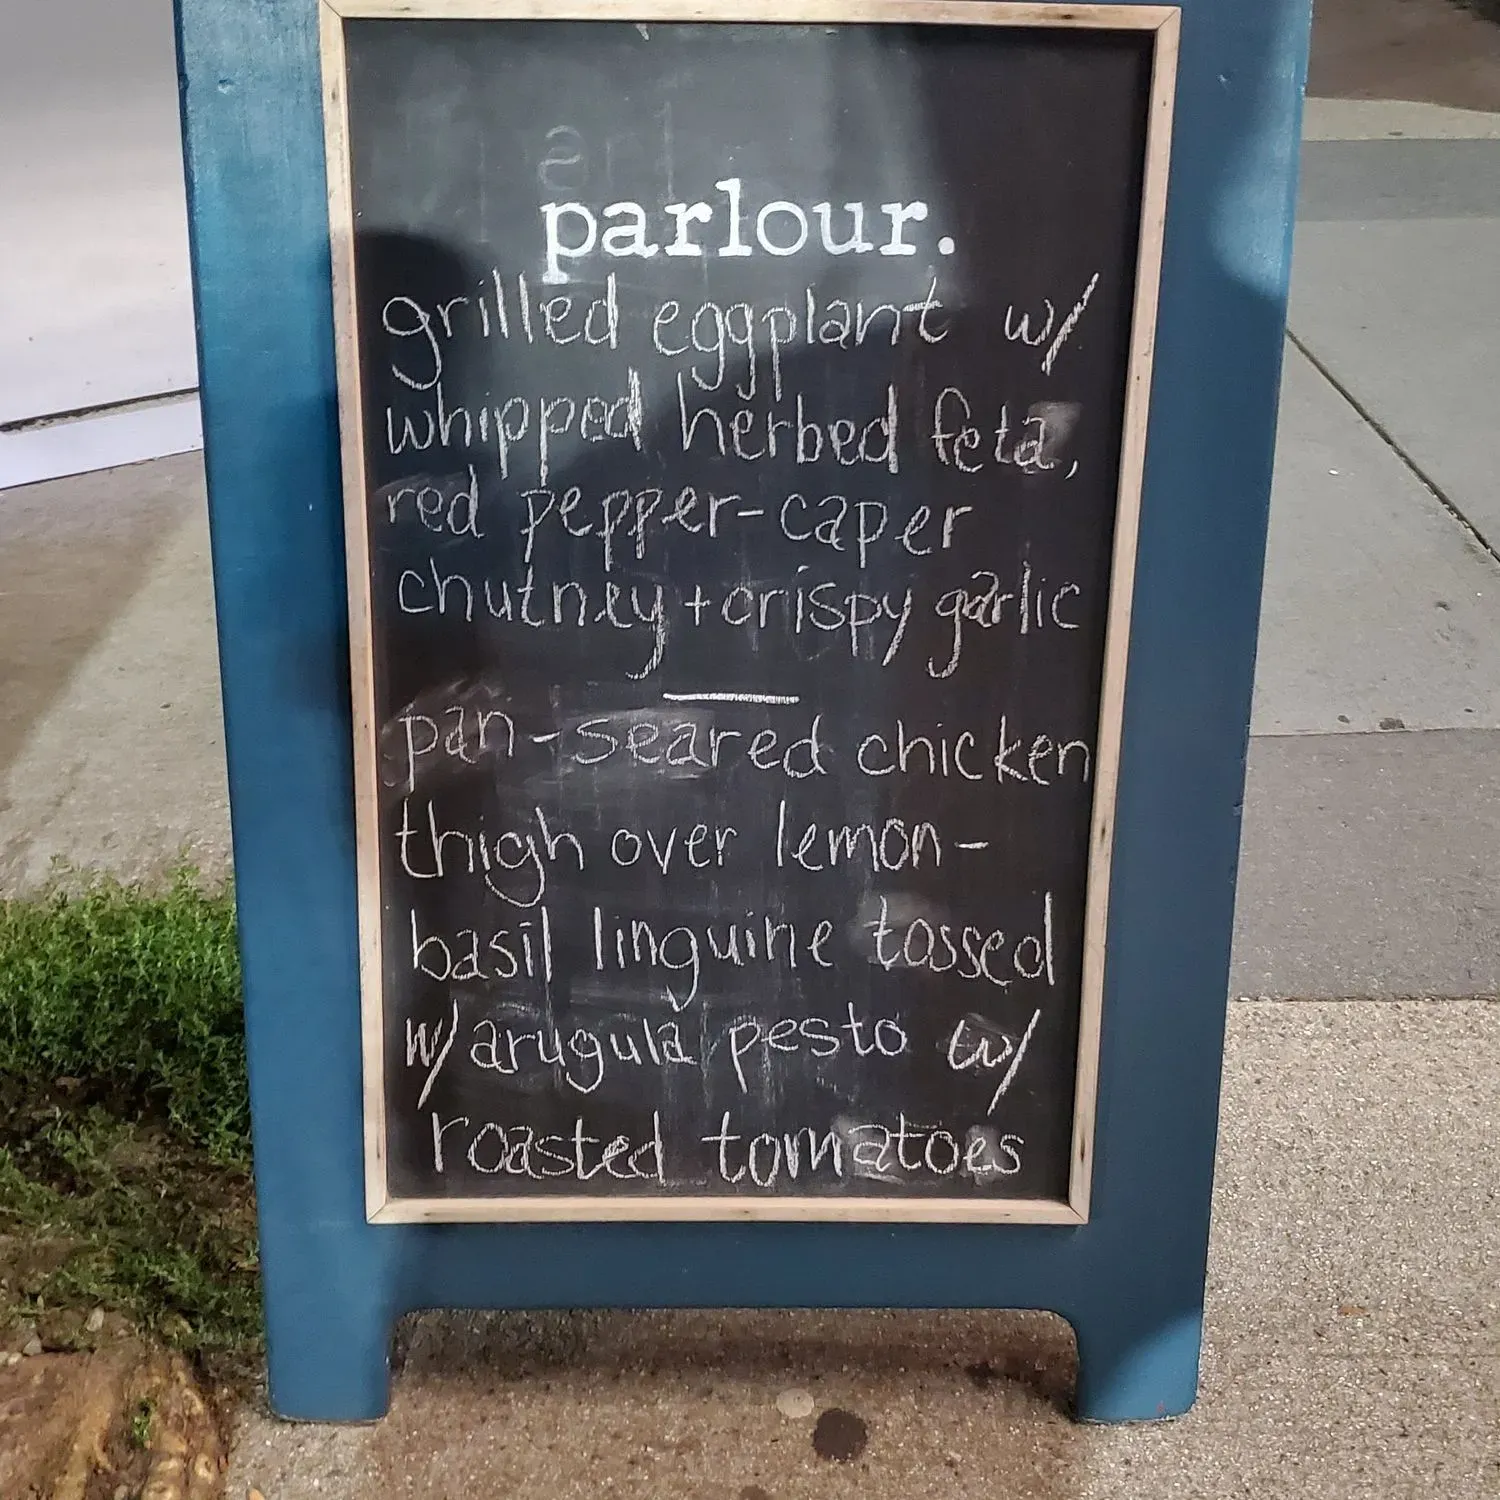 parlour.
grilled eggplant w/
whipped herbed feta,
red pepper-caper
chutney + crispy garlic
pan-seared chicken
thigh over lemon-
basil linguine tossed
w/ arugula pesto w/
roasted tomatoes